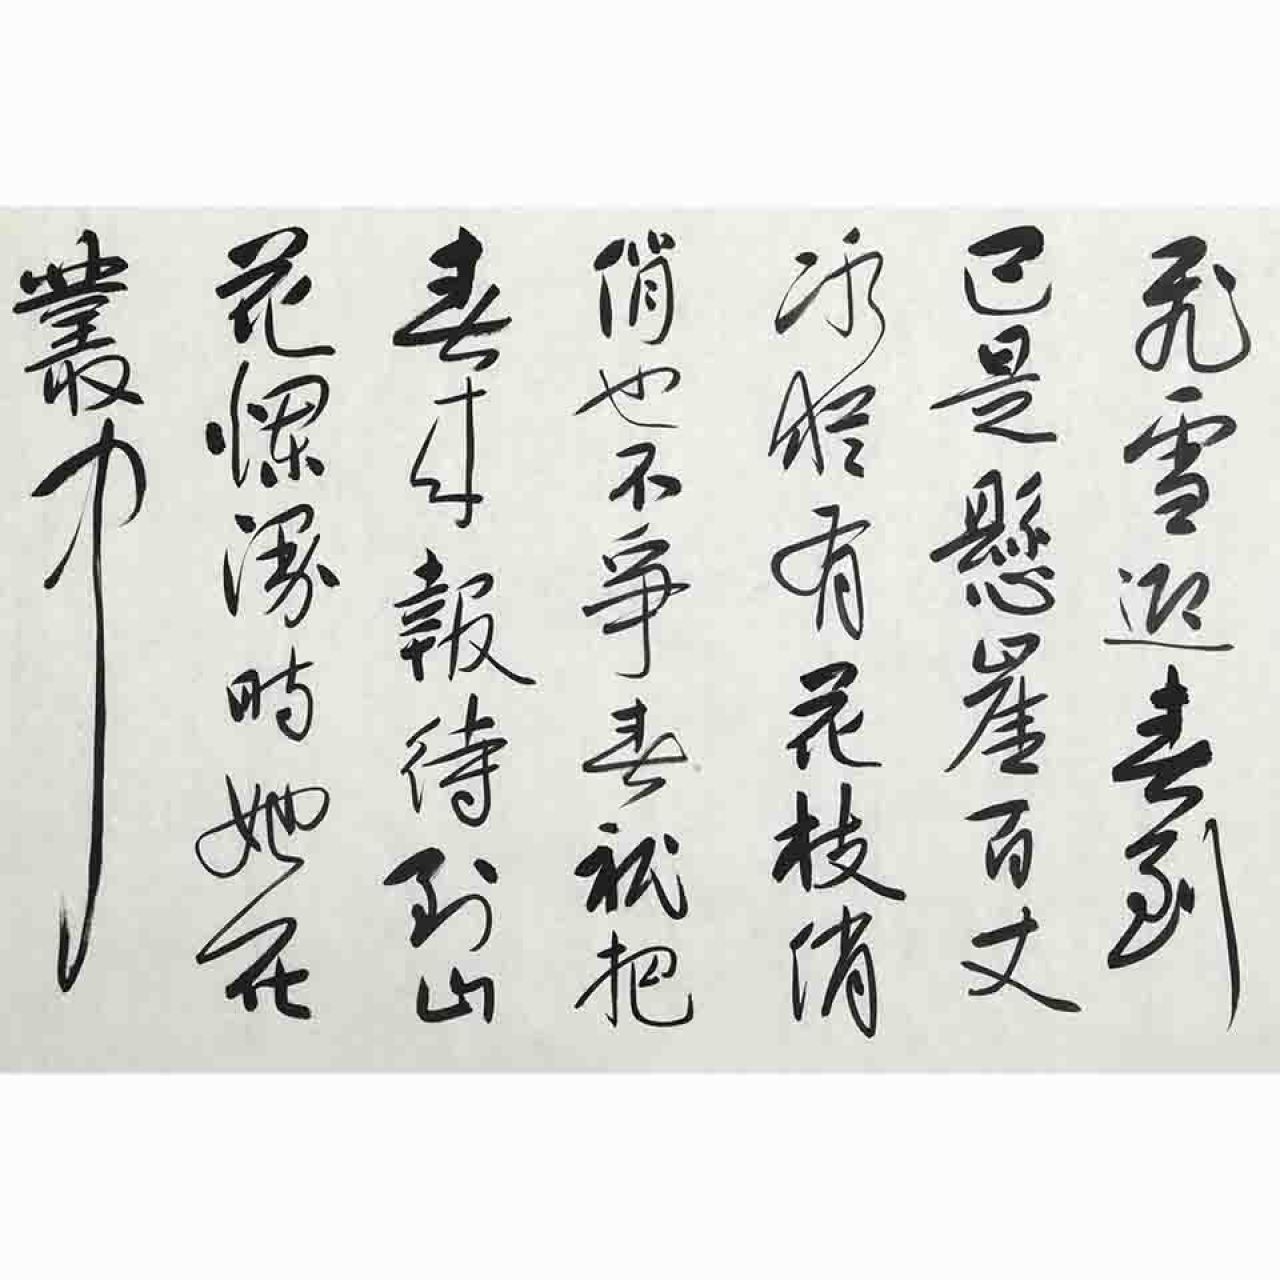 飛雪迎春到
已是懸崖百丈
冰猶有花枝俏
俏也不爭春祇把
春來報待到山
花爛漫時她在
叢中